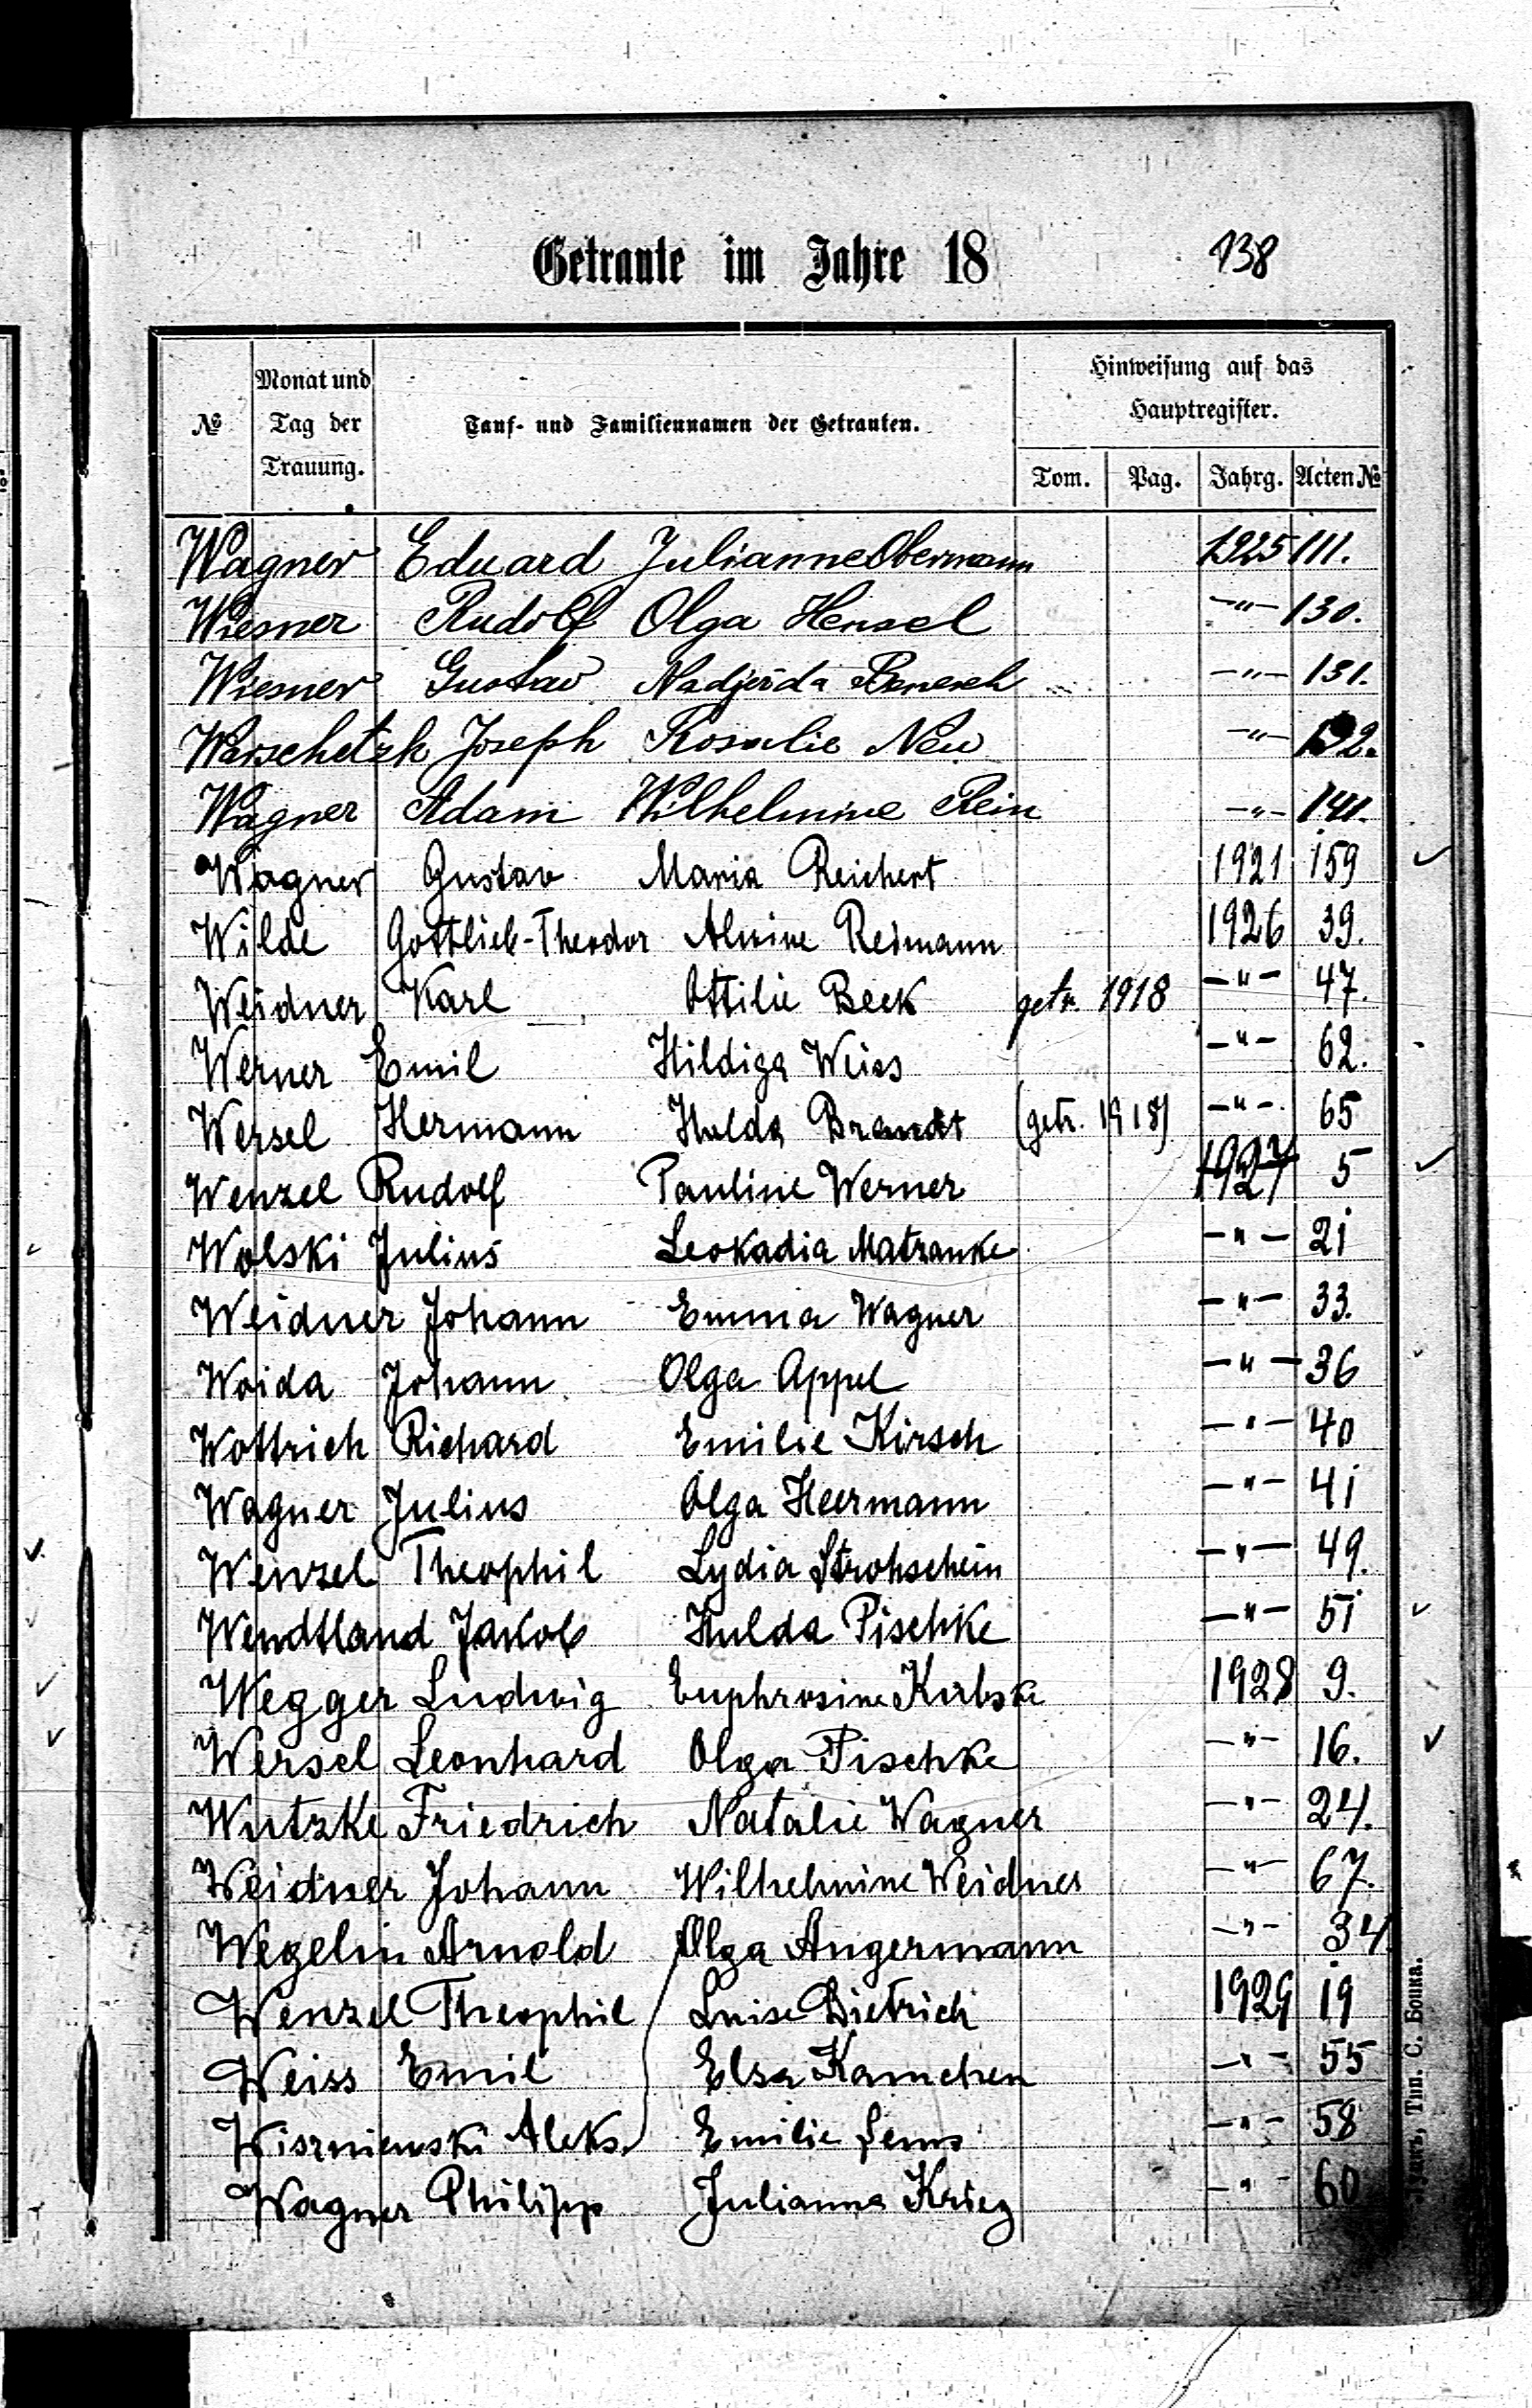 Getraute im Jahre 18 138
№ Monat und Tag der Trauung. Tauf- und Familiennamen der Getrauten. Hinweisung auf das Hauptregister.
Tom. Pag. Jahrg. Acten №
Wagner Eduard Julianne Obermann 1925 111.
Wiesner Rudolf Olga Hensel -"- 130.
Wiesner Gustav Nadjeida Benesch -"- 131.
Warschetzk Joseph Rosalie Neu -"- 132.
Wagner Adam Wilhelmine Rein -"- 141.
Wagner Gustav Maria Reichert 1921 159 ✓
Wilde Gottlieb-Theodor Alwine Reimann 1926 39.
Weidner Karl Ottilie Beck getr. 1918 -"- 47.
Werner Emil Hildiga Weiss -"- 62.
Wersel Hermann Hulda Brandt (getr. 1918) -"- 65
Wenzel Rudolf Pauline Werner 1927 5 ✓
Wolski Julius Leokadia Matzanke -"- 21
Weidner Johann Emma Wagner -"- 33.
Woida Johann Olga Appel -"- 36
Wottrich Richard Emilie Kirsch -"- 40
Wagner Julius Olga Heermann -"- 41
Wenzel Theophil Lydia Strohschein -"- 49.
Wendtland Jakob Hulda Pischke -"- 51 ✓
Wegger Ludwig Euphrosine Kirbske 1928 9.
Wersel Leonhard Olga Pischke -"- 16. ✓
Wutzke Friedrich Natalie Wagner -"- 24.
Weidner Johann Wilhelmine Weidner -"- 67.
Wegelin Arnold Olga Angermann -"- 34
Wenzel Theophil Luise Dietrich 1929 19
Weiss Emil Elsa Kamchen -"- 55
Wiszniewski Aleks. Emilie -"- 58
Wagner Philipp Julianna Krieg -"- 60
Тип. С. Бонка.